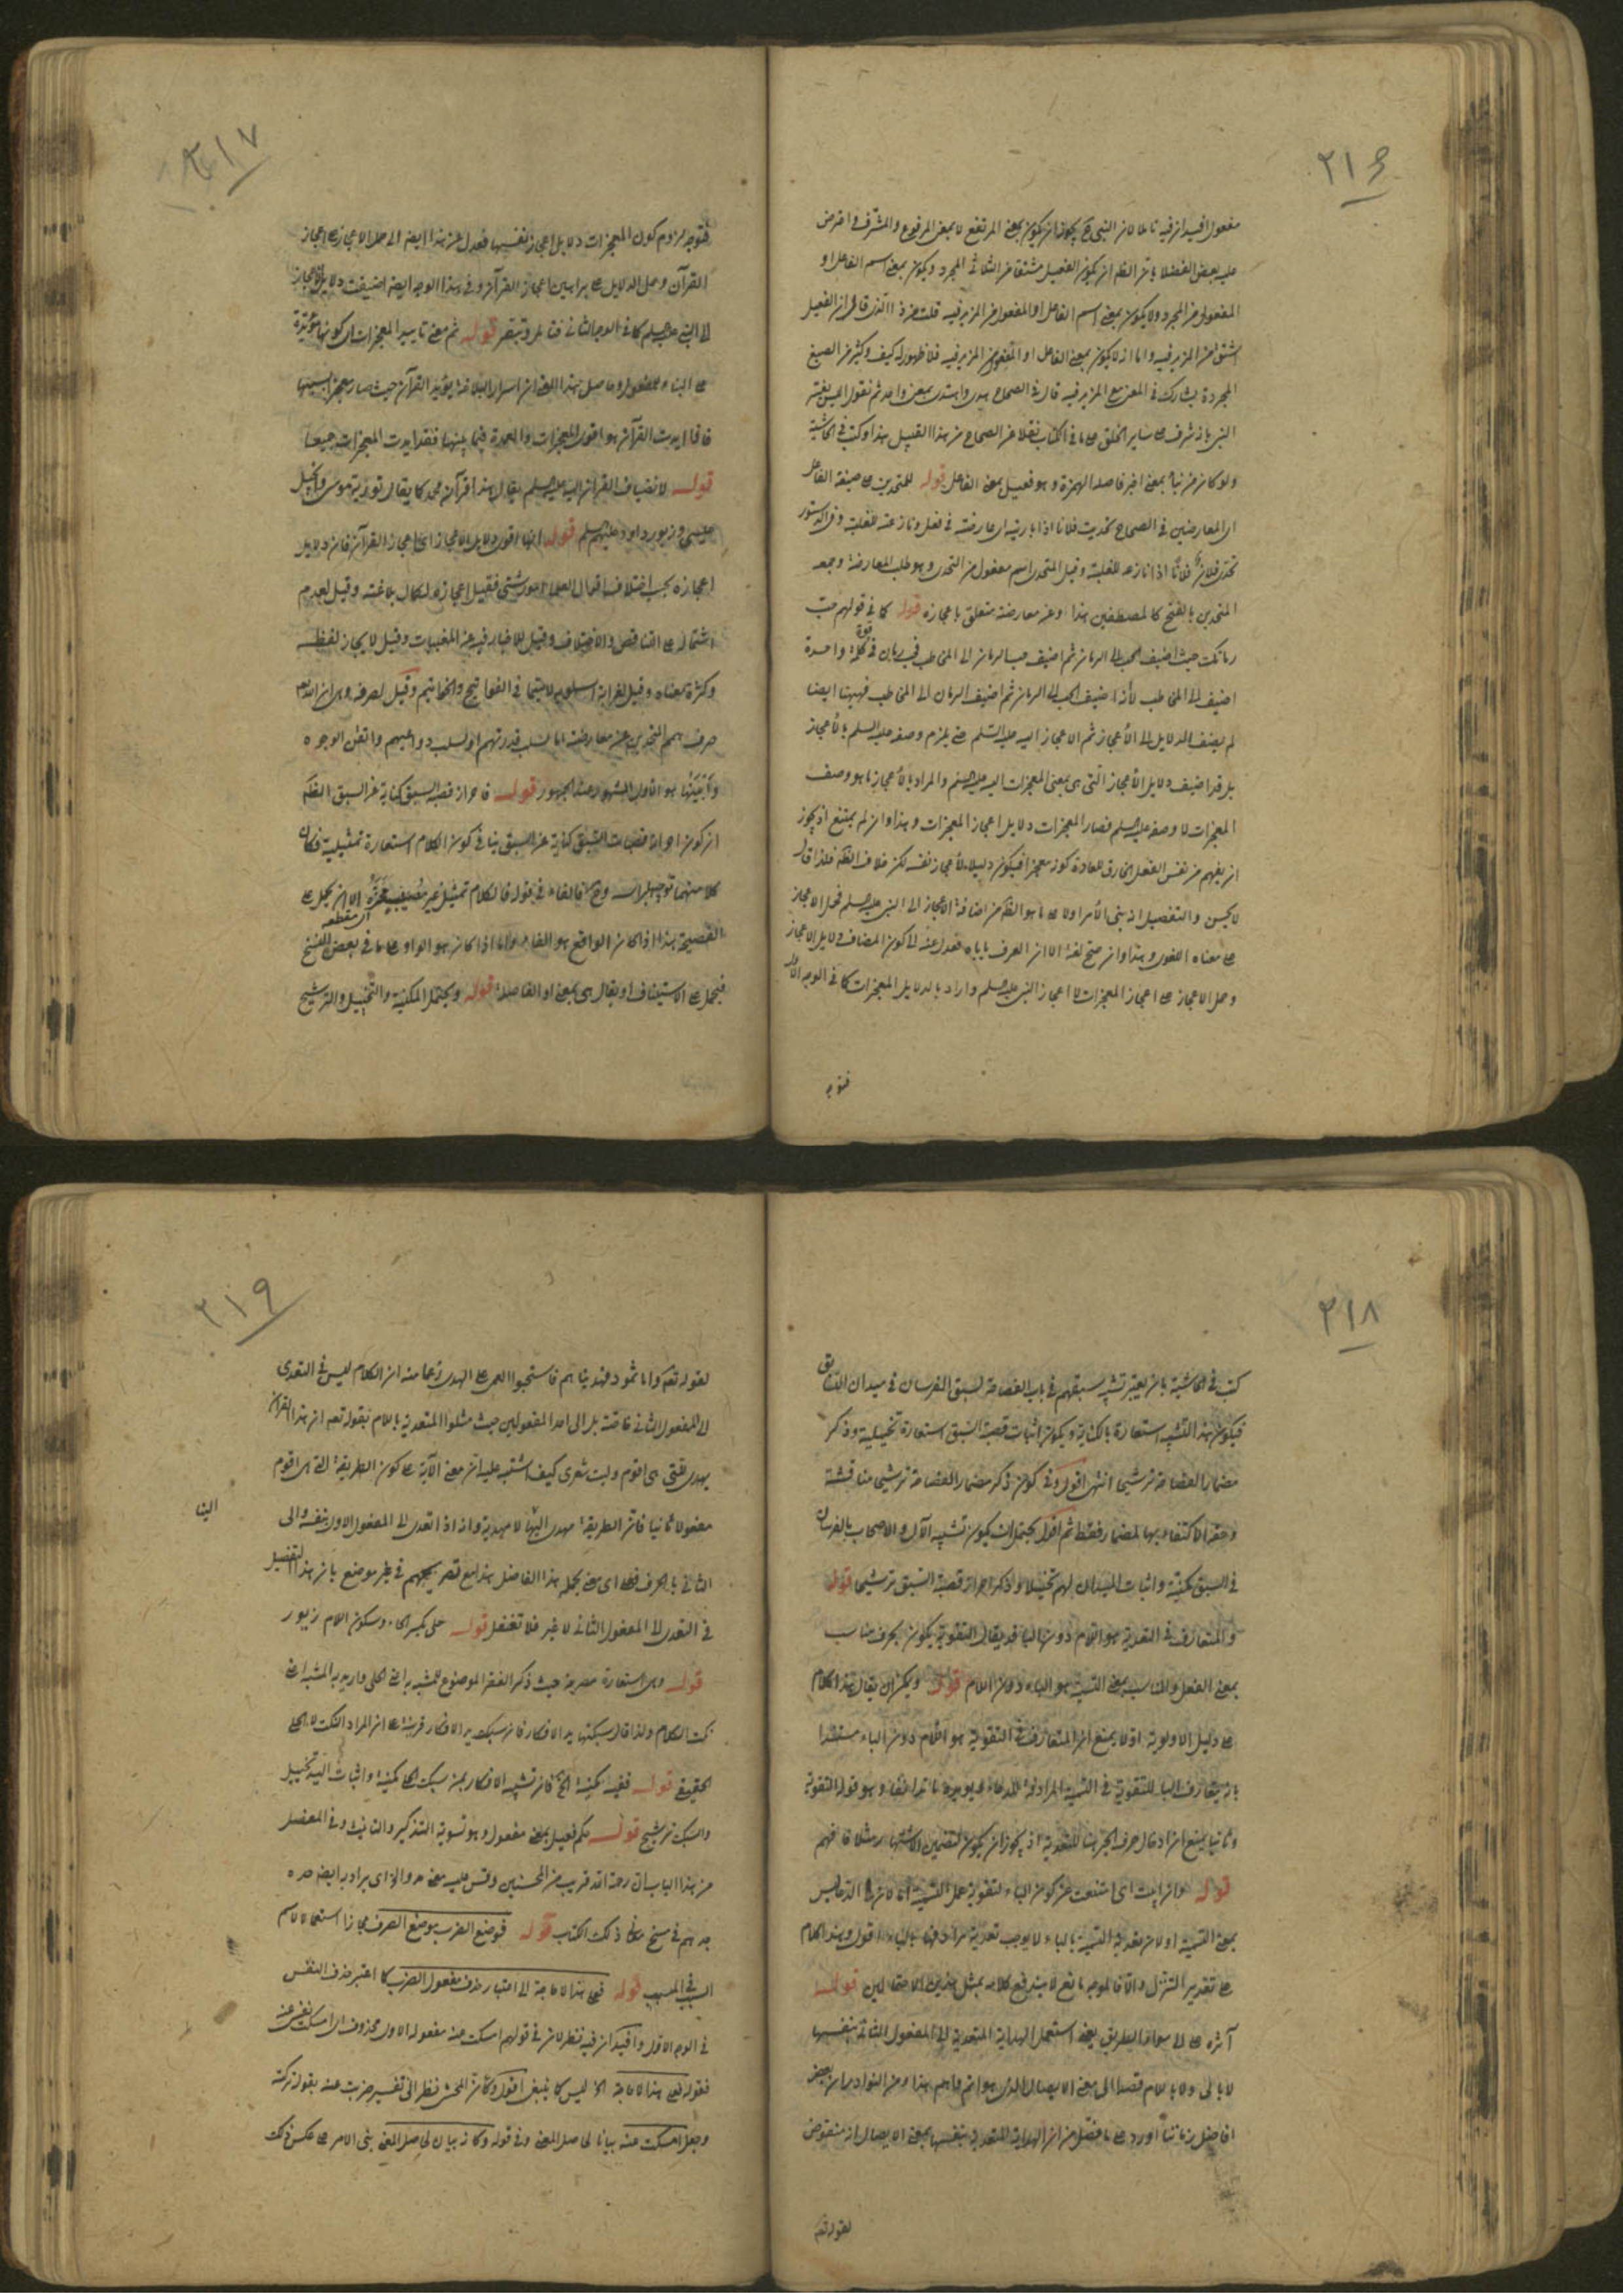 ٢١٦
مفعول افيد ان فيه تاملا لان النبي ح يجوز ان يكون بمعنى المرتفع لا بمعنى المرفوع والمشرف واعترض
عليه بعض الفضلا بان الظم ان يكون الفعيل مشتقا من الثلاثي المجرد ويكون بمعنى اسم الفاعل او
المفعول من المجرد ولا يكون بمعنى اسم الفاعل او المفعول من المزيد فيه قلت من ذا الذي قال ان الفعيل
اشتق من المزيد فيه واما انه لا يكون بمعنى الفاعل او المفعول من المزيد فيه فلا ظهور له كيف وكثير من الصيغ
المجردة يشارك في المعنى مع المزيد فيه قال في الصحاح هدى واهتدى بمعنى واحد ثم نقول
النبي بانه شرف على ساير الخلق على ما في الكتاب نقلا عن الصحاح من هذا القبيل هذا وكتب في الحاشية
ولو كان من نبأ بمعنى اخبر فاصله الهمزة وهو فعيل بمعنى الفاعل قوله للمتحدين على صيغة الفاعل
اى المعارضين في الصحاح تحديت فلانا اذا باريته اى عارضته في فعل ونازعته للغلبة وفي الدستور
تحدى فلان فلانا اذا نازعه للغلبة وقيل المتحدى اسم مفعول من التحدى وهو طلب المعارضة وجمعه
المتحدين بالفتح كالمصطفين هذا وعن معارضته متعلق باعجازه قوله كما في قولهم حب
رمانك حيث اضيف الحب الى الرمان ثم اضيف حب الرمان الى المخاطب فحب رمان في قوة كلمة واحدة
اضيف الى المخاطب لا انه اضيف الحب الى الرمان ثم اضيف الرمان الى المخاطب فههنا ايضا
لم يضف الدلايل الى الاعجاز ثم الاعجاز اليه عليه السلم حتى يلزم وصفه عليه السلم بالاعجاز
بل قد اضيف دلايل الاعجاز التي هى بمعنى المعجزات اليه عليه السلم والمراد بالاعجاز ما هو وصف
المعجزات لا وصفه عليه السلم فصار المعجزات دلايل اعجاز المعجزات وهذا وان لم يمتنع اذ يجوز
ان يفهم من نفس الفعل الخارق للعادة كونه معجزا فيكون دليلا لاعجاز نفسه لكن خلاف الظم فلذا قال
لا يحسن والتفصيل انه بنى الامر اولا على ما هو الظم من اضافة الاعجاز الى النبي عليه السلم فحمل الاعجاز
على معناه اللغوى وهذا وان صح لغة الا ان العرف ياباه فعدل عنه الى كون المضاف دلايل الاعجاز
وحمل الاعجاز على اعجاز المعجزات لا اعجاز النبي عليه السلم واراد بالدلايل المعجزات كما في الوجه الاول
فتوجه
٢١٧
فتوجه لزوم كون المعجزات دلايل اعجاز نفسها فعدل عن هذا ايضا الى حمل الاعجاز على اعجاز
القرآن وحمل الدلايل على براهين اعجاز القرآن وفي هذا الوجه ايضا اضيفت دلايل الاعجاز
الى النبي عليه السلم كما في الوجه الثاني فتامل وتبصر قوله ثم معنى تاييد المعجزات اى كونها مؤيدة
على البناء للمفعول وحاصل هذا الوجه ان اسرار البلاغة يؤيد القرآن حيث صار معجزا بسببها
فاذا ايدت القرآن هو اقوى المعجزات والعمدة فيما بينها فقد ايدت المعجزات جميعا
قوله لا تضياف القرآن اليه عليه السلم يقال هذا قرآن محمد كما يقال تورية موسى وانجيل
عيسى وزبور داود عليهم السلم قوله انها اقوى دلايل الاعجاز اى اعجاز القرآن فان دلايل
اعجازه بحسب اختلاف اقوال العلماء امور شتى فقيل اعجازه لكمال بلاغته وقيل لعدم
اشتماله على التناقض والاختلاف وقيل للاخبار فيه عن المغيبات وقيل لايجاز لفظه
وكثرة معناه وقيل لغرابة اسلوبه لا سيما في الفواتيح والخواتيم وقيل لصرفه وهى ان الله تعالى
صرف همم المتحدين عن معارضته اما بسلب قدرتهم او بسلب دواعيهم واتقن الوجوه
واثبتها هو الاول المشهور عند الجمهور قوله فاحراز قصبة السبق كناية عن السبق الظم
ان كون احراز قصبات السبق كناية عن السبق ينافي كون الكلام استعارة تمثيلية فكان
كلا منهما توجيه براسه وح فالفاء في قوله فالكلام تمثيل غير فصيحة الا ان يحمل على
الفصيحة هذا اذا كان الواقع هو الفاء واما اذا كان هو الواو على ما في بعض النسخ
فيحمل على الاستيناف او يقال هى بمعنى او الفاصلة قوله ويحتمل المكنية والتخييل والترشيح
٢١٨
كتب في الحاشية بان يعتبر تشبيه سبقهم في باب الفصاحة بسبق الفرسان في ميدان السابق
فيكون هذا التشبيه استعارة بالكناية ويكون اثبات قصبة السبق استعارة تخييلية وذكر
مضمار الفصاحة ترشيحا انتهى اقول وفي كون ذكر مضمار الفصاحة ترشيحى مناقشة
وحقه الاكتفاء بها بالمضمار فقط ثم اقول يحتمل ان يكون تشبيه الآل والاصحاب بالفرسان
في السبق مكنية واثبات الميدان لهم تخييلا وذكر احراز قصبة السبق ترشيحى قوله
والمتعارف في التعدية هو اللام دون الباء قد يقال التقوية يكون بحرف مناسب
بمعنى الفعل والمناسب بمعنى التسمية هو الباء دون اللام قوله ويمكن ان يقال هذا الكلام
على دليل الاولوية اولا يمنع ان المتعارف في التقوية هو اللام دون الباء مستندا
بان يتعارف الباء للتقوية في التسمية المرادفة للدعاء وهو قوله التقوية
وثانيا يمنع ان ادخال حرف الجر هنا للتعدية اذ يجوز ان يكون لتضمين الاشتهار مثلا فافهم
قوله وان ابيت اى امتنعت عن كون الباء لتقوية عمل التسمية
بمعنى التسمية او لان تعدية التسمية بالباء لا يوجب تعدية مرادفها بالباء اقول وهذا الكلام
على تقدير التنزل والا فالموجه مانع لا يندفع كلامه بمثل هذين الاحتمالين قوله
آثره على الى سواء الطريق يعنى استعمل الهداية المتعدية الى المفعول الثاني بنفسها
لا بالى ولا باللام قصدا الى معنى الايصال الذى هو اتم واهم هذا ومن النوادر ان بعض
افاضل زماننا اورد على ما فصل من ان الهداية المتعدية بنفسها بمعنى الايصال انه منقوض
لقوله تعالى
٢١٩
لقوله تعالى واما ثمود فهديناهم فاستحبوا العمى على الهدى زعما منه ان الكلام ليس في التعدى
الى المفعول الثاني خاصة بل الى احد المفعولين حيث مثلوا المتعدية باللام بقوله تعالى ان هذا القرآن
يهدى للتى هى اقوم وليت شعرى كيف اشتبه عليه ان معنى الآية على كون الطريقة التى هى اقوم
مفعولا ثانيا فان الطريقة مهدى اليها لا مهدية وانه اذا تعدى الى المفعول الاول بنفسه والى
الينا
الثاني بالحرف فعلى اى معنى يحمله هذا الفاضل هذا مع تصريحهم في غير موضع بان هذا التفصيل
في التعدى الى المفعول الثاني لا غير فلا تغفل قوله حلى بكسر الحاء وسكون اللام زيور
قوله وهى استعارة مصرحة حيث ذكر الفقر الموضوع للمشبه به اعنى الحلى واريد به المشبه اعنى
نكت الكلام ولذا قال سبكتها يد الافكار فان سبك يد الافكار قرينة على ان المراد النكت لا الحلى
الحقيقى قوله ففيه مكنية الخ فان تشبيه الافكار بمن سبك الحلى مكنية واثبات اليد تخييل
والسبك ترشيح قوله حكم فعيل بمعنى مفعول وهو تسوية التذكير والتانيث وفي المفصل
من هذا الباب ان رحمة الله قريب من المحسنين وقس عليه
قوله فوضع الضرب موضع الصرف مجازا استعمالا لاسم
السبب في المسبب قوله فعلى هذا لا حاجة الى اعتبار حذف مفعول الضرب كما اعتبر حذف النفس
في الوجه الاول وافيد ان فيه نظر لان في قولهم امسكت عنه مفعوله الاول محذوف اى امسكت نفسى عنه
فقوله فعلى هذا لا حاجة الخ ليس كما ينبغى اقول وكان المحشى نظر الى تفسير ضربت عنه بقوله تركته
وجعل امسكت عنه بيانا لحاصل المعنى وفي قوله وكانه بيان لحاصل المعنى بنى الامر على عكس ذلك